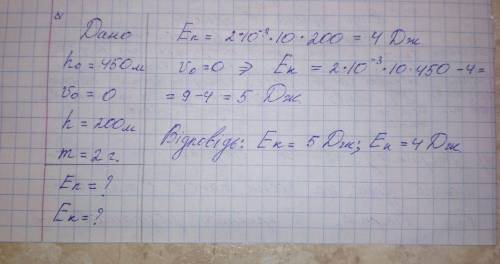 Дано
h₀ = 450м
v₀ = 0
h = 200м
m = 2 г.
Eп = ?
Eк = ?
Eп = 2·10⁻³·10·200 = 4 Дж
v₀=0 ⇒ Eк = 2·10⁻³·10·450 –4=
= 9–4 = 5 Дж
Відповідь: Eк = 5 Дж; Eп = 4 Дж